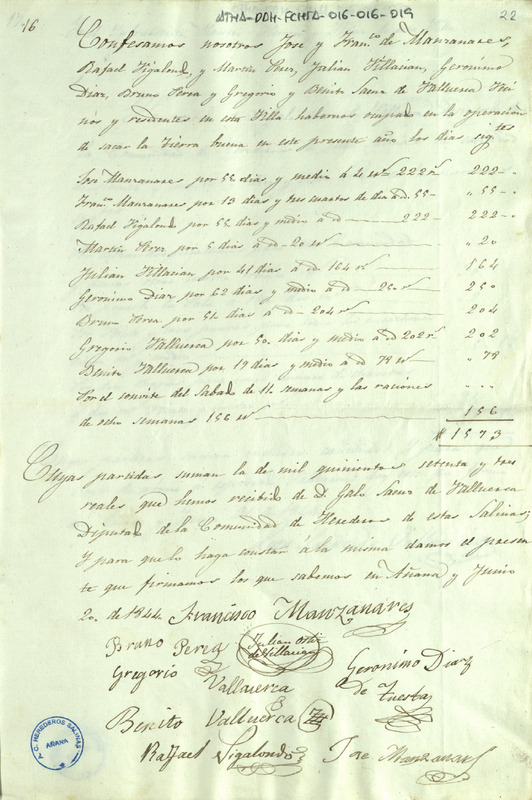 ATHA-DDH-FCHSA-016-016-019
16
22
Confesamos nosotros Jose y Fran.co de Manzanares,
Rafael Higalondo, y Martin Perez, Julian Villasian, Geronimo
Diaz, Bruno Perea y Gregorio y Benito Saenz de Valluerca Veci
nos y residentes en esta Villa habernos ocupado en la operacion
de sacar la tierra buena en este presente año los dias sig.tes
Jose Manzanares por 55 dias y medio á 4 r.s 222 r.s 222 -
Fran.co Manzanares por 13 dias y tres cuartos de dia á d. 55 - " 55 -
Rafael Higalondo por 55 dias y medio á d 222 - 222 -
Martin Perez por 5 dias á d - 20 r.s " 20
Julian Villasian por 41 dias á d. 164 r.s 164
Geronimo Diaz por 62 dias y medio á d - 250 r.s 250
Bruno Perea por 51 dias á d - 204 r.s 204
Gregorio Valluerca por 50 dias y medio á d 202 r.s 202
Benito Valluerca por 19 dias y medio á d 78 r.s " 78
Por el convite del Sabado de 11 semanas y las raciones " " "
de ocho semanas 156 r.s 156
1573
Cuyas partidas suman la de mil quinientos setenta y tres
reales que hemos recibido de D. Galo Saenz de Valluerca
Diputado de la Comunidad de Herederos de estas Salinas;
Y para que lo haga constar á la misma damos el presen
te que firmamos los que sabemos en Añana y Junio
20 de 1844. Francisco Manzanares
Bruno Perea Julian Ortiz
de Villasian
Gregorio Geronimo Diaz
Valluerca de Tuesta
Benito Valluerca
Raffael Sigalondo Jose Manzanares
A. C. HEREDEROS SALINAS
AÑANA